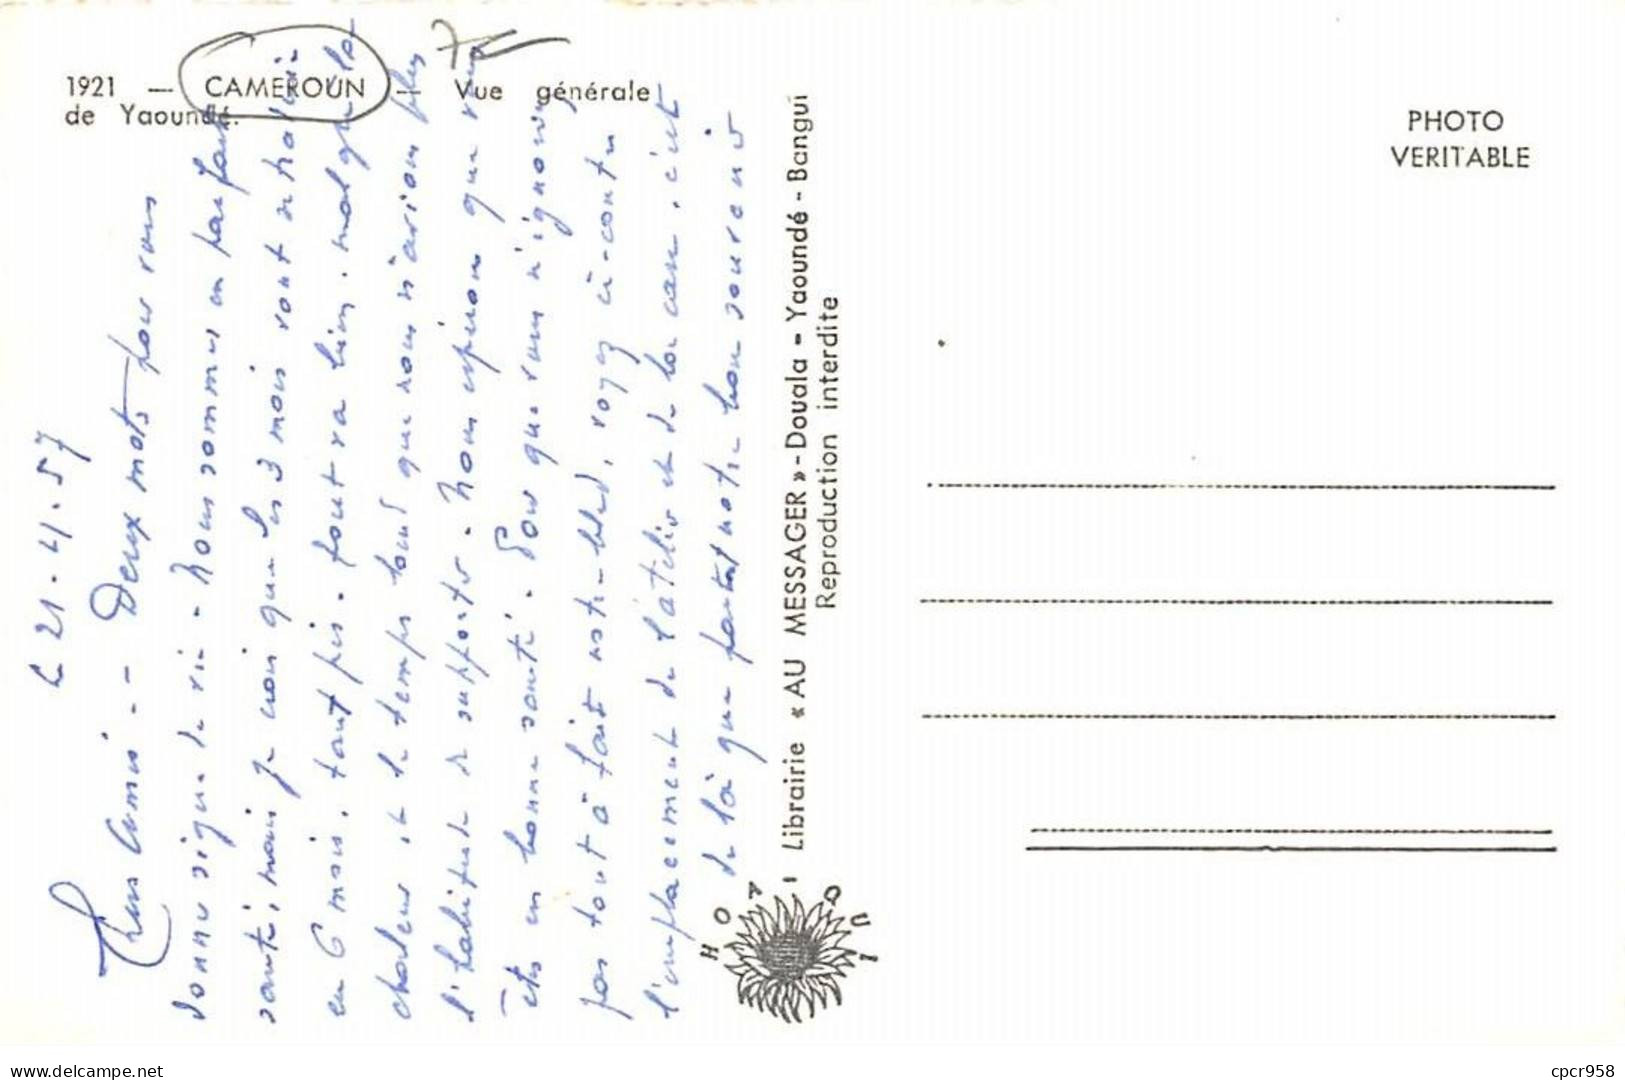 1921 — CAMEROUN — Vue générale
de Yaoundé.
PHOTO
VERITABLE
Le 21.4.57
Chers Amis. - Deux mots pour vous
donner signe de vie - Nous sommes en parfaite
santé, mais je crois que les 3 mois vont
en 6 mois, tant pis. tout va bien. malgré la
chaleur et le temps lourd que nous n'avions plus
l'habitude de supporter. Nous espérons que vous
êtes en bonne santé. Pour que vous n'ignoriez
pas tout à fait notre bled, voyez ci-contre
l'emplacement de l'atelier et de la case, c'est
de là que partent notre bon souvenir
Librairie « AU MESSAGER » - Douala - Yaoundé - Bangui
Reproduction interdite
HOA-QUI
delcampe.net
cpcr958